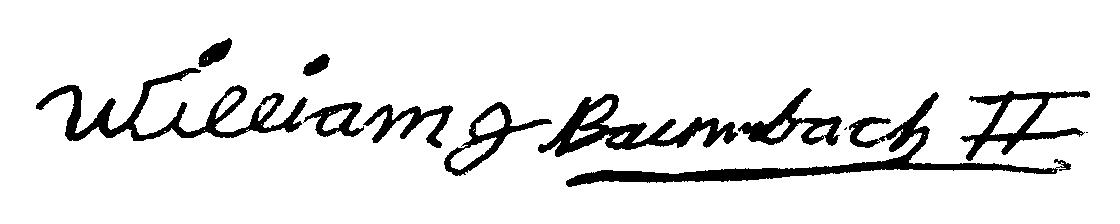 William J Baumbach II